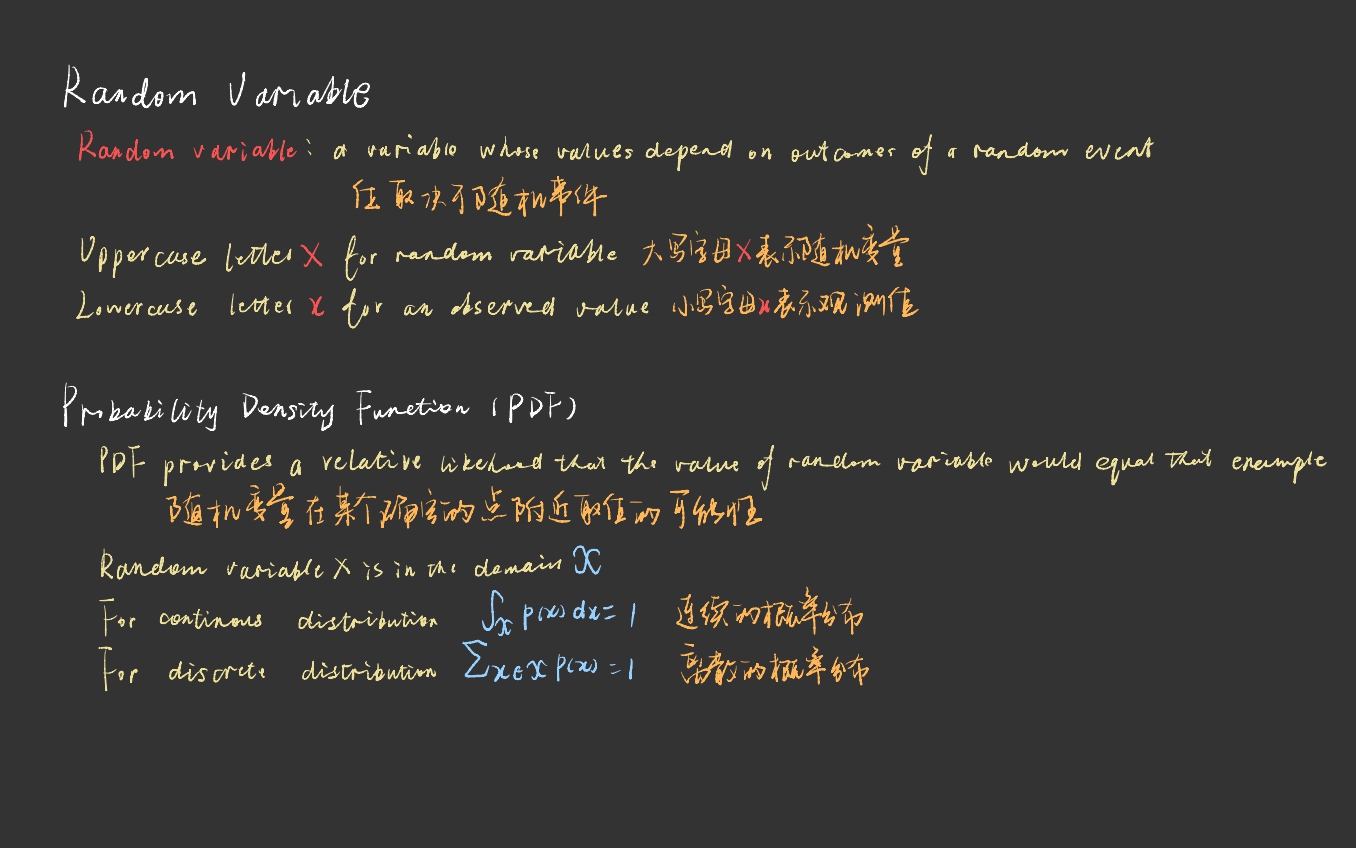 Random Variable
Random variable: a variable whose values depend on outcomes of a random event
值取决于随机事件
Uppercase letter X for random variable 大写字母X表示随机变量
Lowercase letter x for an observed value 小写字母x表示观测值
Probability Density Function (PDF)
PDF provides a relative likehood that the value of random variable would equal that enample
随机变量在某个确定的点附近取值的可能性
Random variable X is in the domain 𝒳
For continous distribution ∫𝒳 p(x) dx = 1 连续的概率分布
For discrete distribution ∑x∈𝒳 p(x) = 1 离散的概率分布